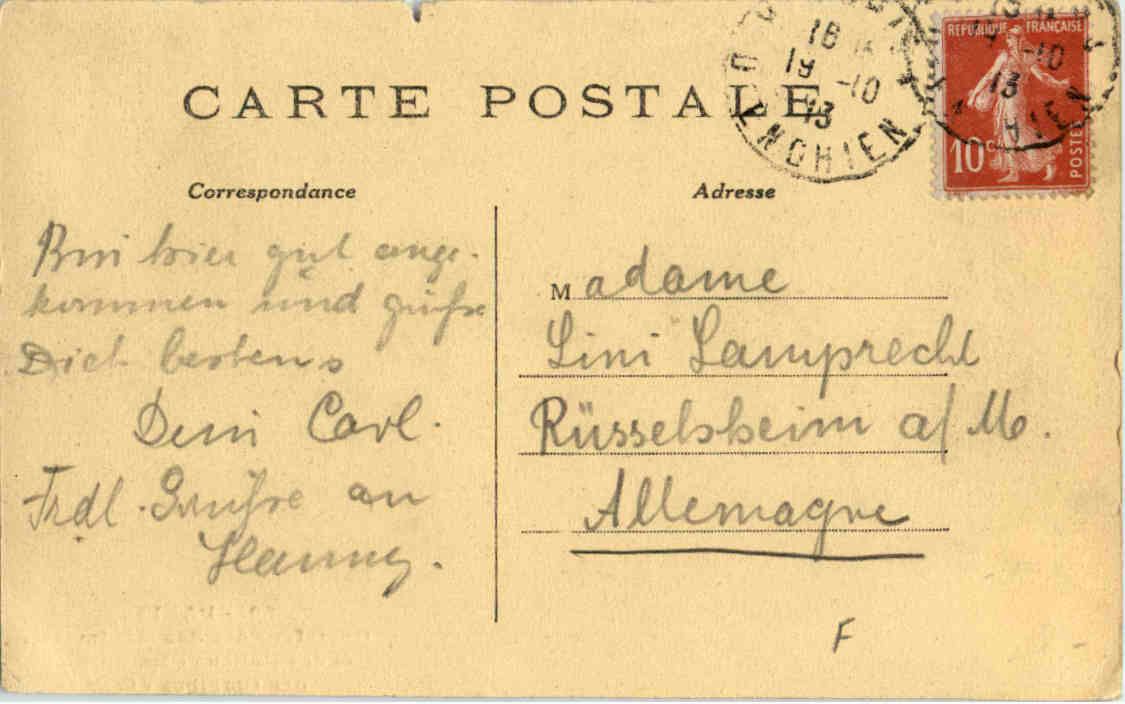 CARTE POSTALE
18
19 -10
13
ENGHIEN
REPUBLIQUE FRANÇAISE
-10
13
HIEN
10c
POSTES
Correspondance
Adresse
Bin hier gut ange-
kommen und grüße
Dich bestens
Dein Carl.
Frdl. Grüße an
Hanny.
Madame
Lini Lamprecht
Rüsselsheim a/M.
Allemagne
F